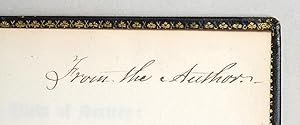 From the Author.